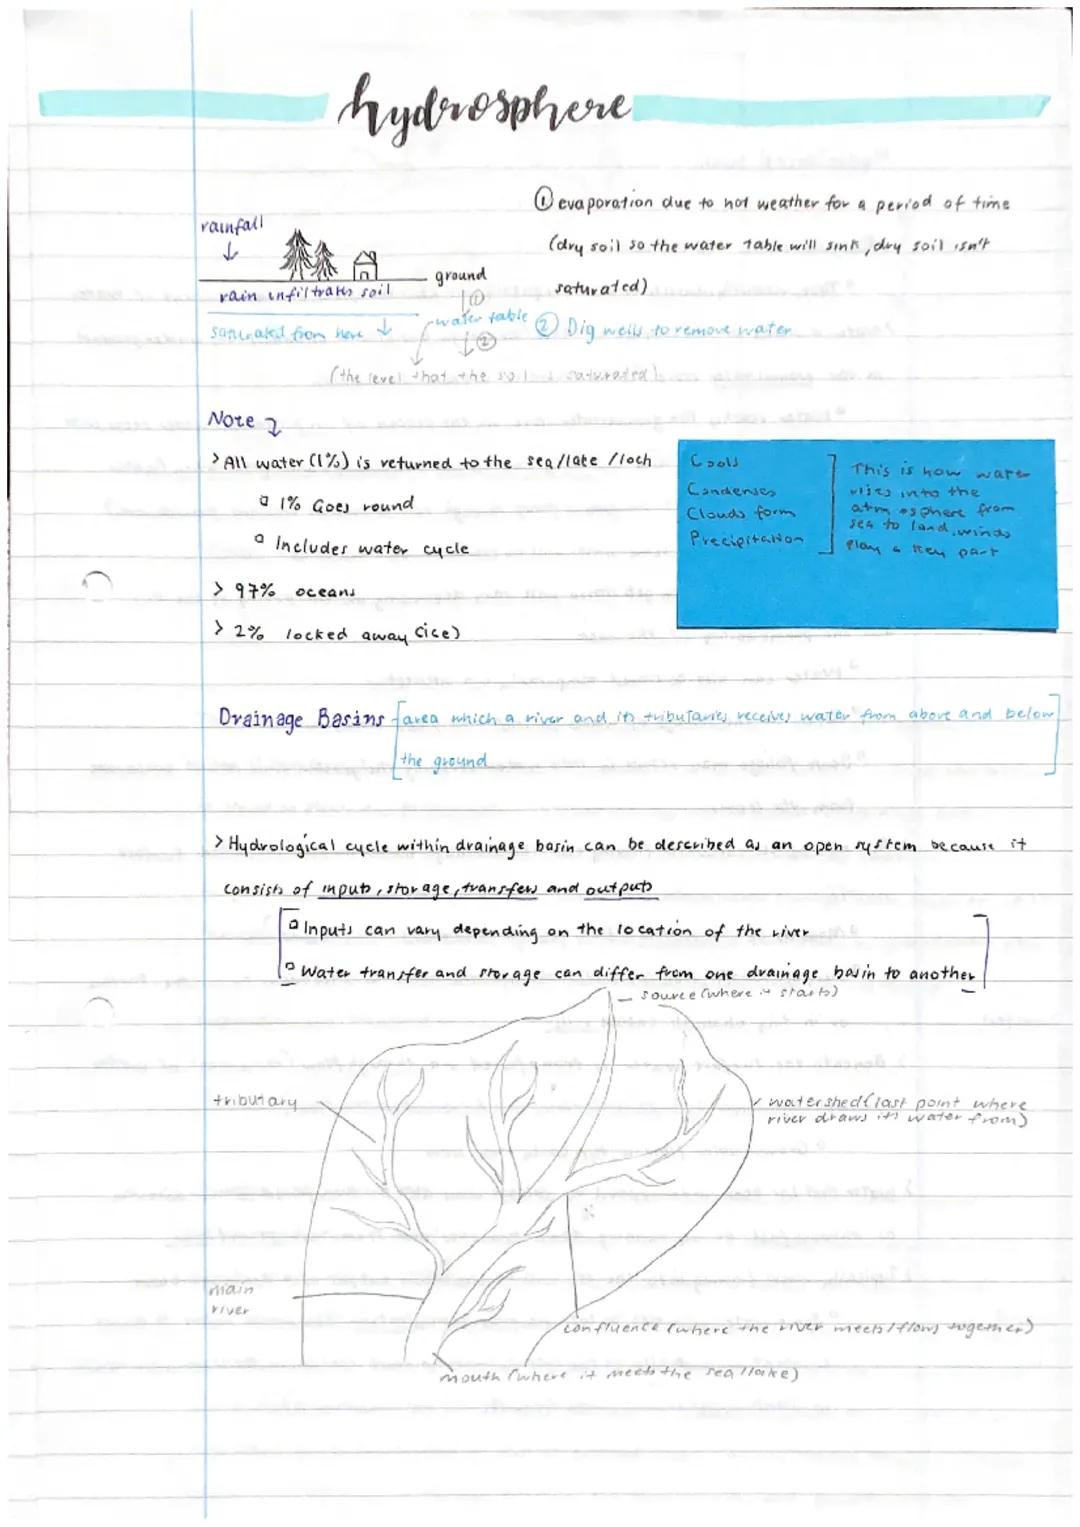 hydrosphere
rainfall
rain infiltrates soil
saturated from here
ground
①
water table
②
(the level that the soil is saturated)
① evaporation due to hot weather for a period of time
(dry soil so the water table will sink, dry soil isn't
saturated)
② Dig wells to remove water
Note
> All water (1%) is returned to the sea/lake/loch
1% Goes round
Includes water cycle
> 97% oceans
> 2% locked away (ice)
Cools
Condenses
Clouds form
Precipitation
This is how water
rises into the
atmosphere from
sea to land, winds
play a key part
Drainage Basins [area which a river and its tributaries receives water from above and below
the ground]
> Hydrological cycle within drainage basin can be described as an open system because it
consists of inputs, storage, transfers and outputs
Inputs can vary depending on the location of the river
Water transfer and storage can differ from one drainage basin to another
source (where it starts)
tributary
watershed (last point where
river draws its water from)
main
river
confluence (where the river meets/flows together)
mouth (where it meets the sea/lake)